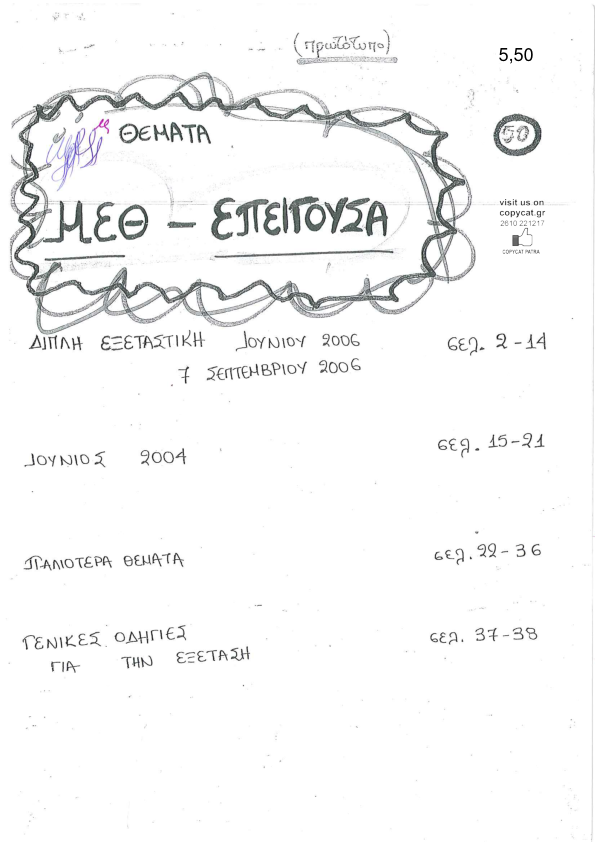 (πρωτότυπο)
5,50
ΘΕΜΑΤΑ
50
ΜΕΘ - ΕΠΕΙΓΟΥΣΑ
visit us on
copycat.gr
2610 221217
COPYCAT PATRA
ΔΙΠΛΗ ΕΞΕΤΑΣΤΙΚΗ ΙΟΥΝΙΟΥ 2006 σελ. 2-14
7 ΣΕΠΤΕΜΒΡΙΟΥ 2006
ΙΟΥΝΙΟΣ 2004 σελ. 15-21
ΠΑΛΙΟΤΕΡΑ ΘΕΜΑΤΑ σελ. 22-36
ΓΕΝΙΚΕΣ ΟΔΗΓΙΕΣ σελ. 37-38
ΓΙΑ ΤΗΝ ΕΞΕΤΑΣΗ